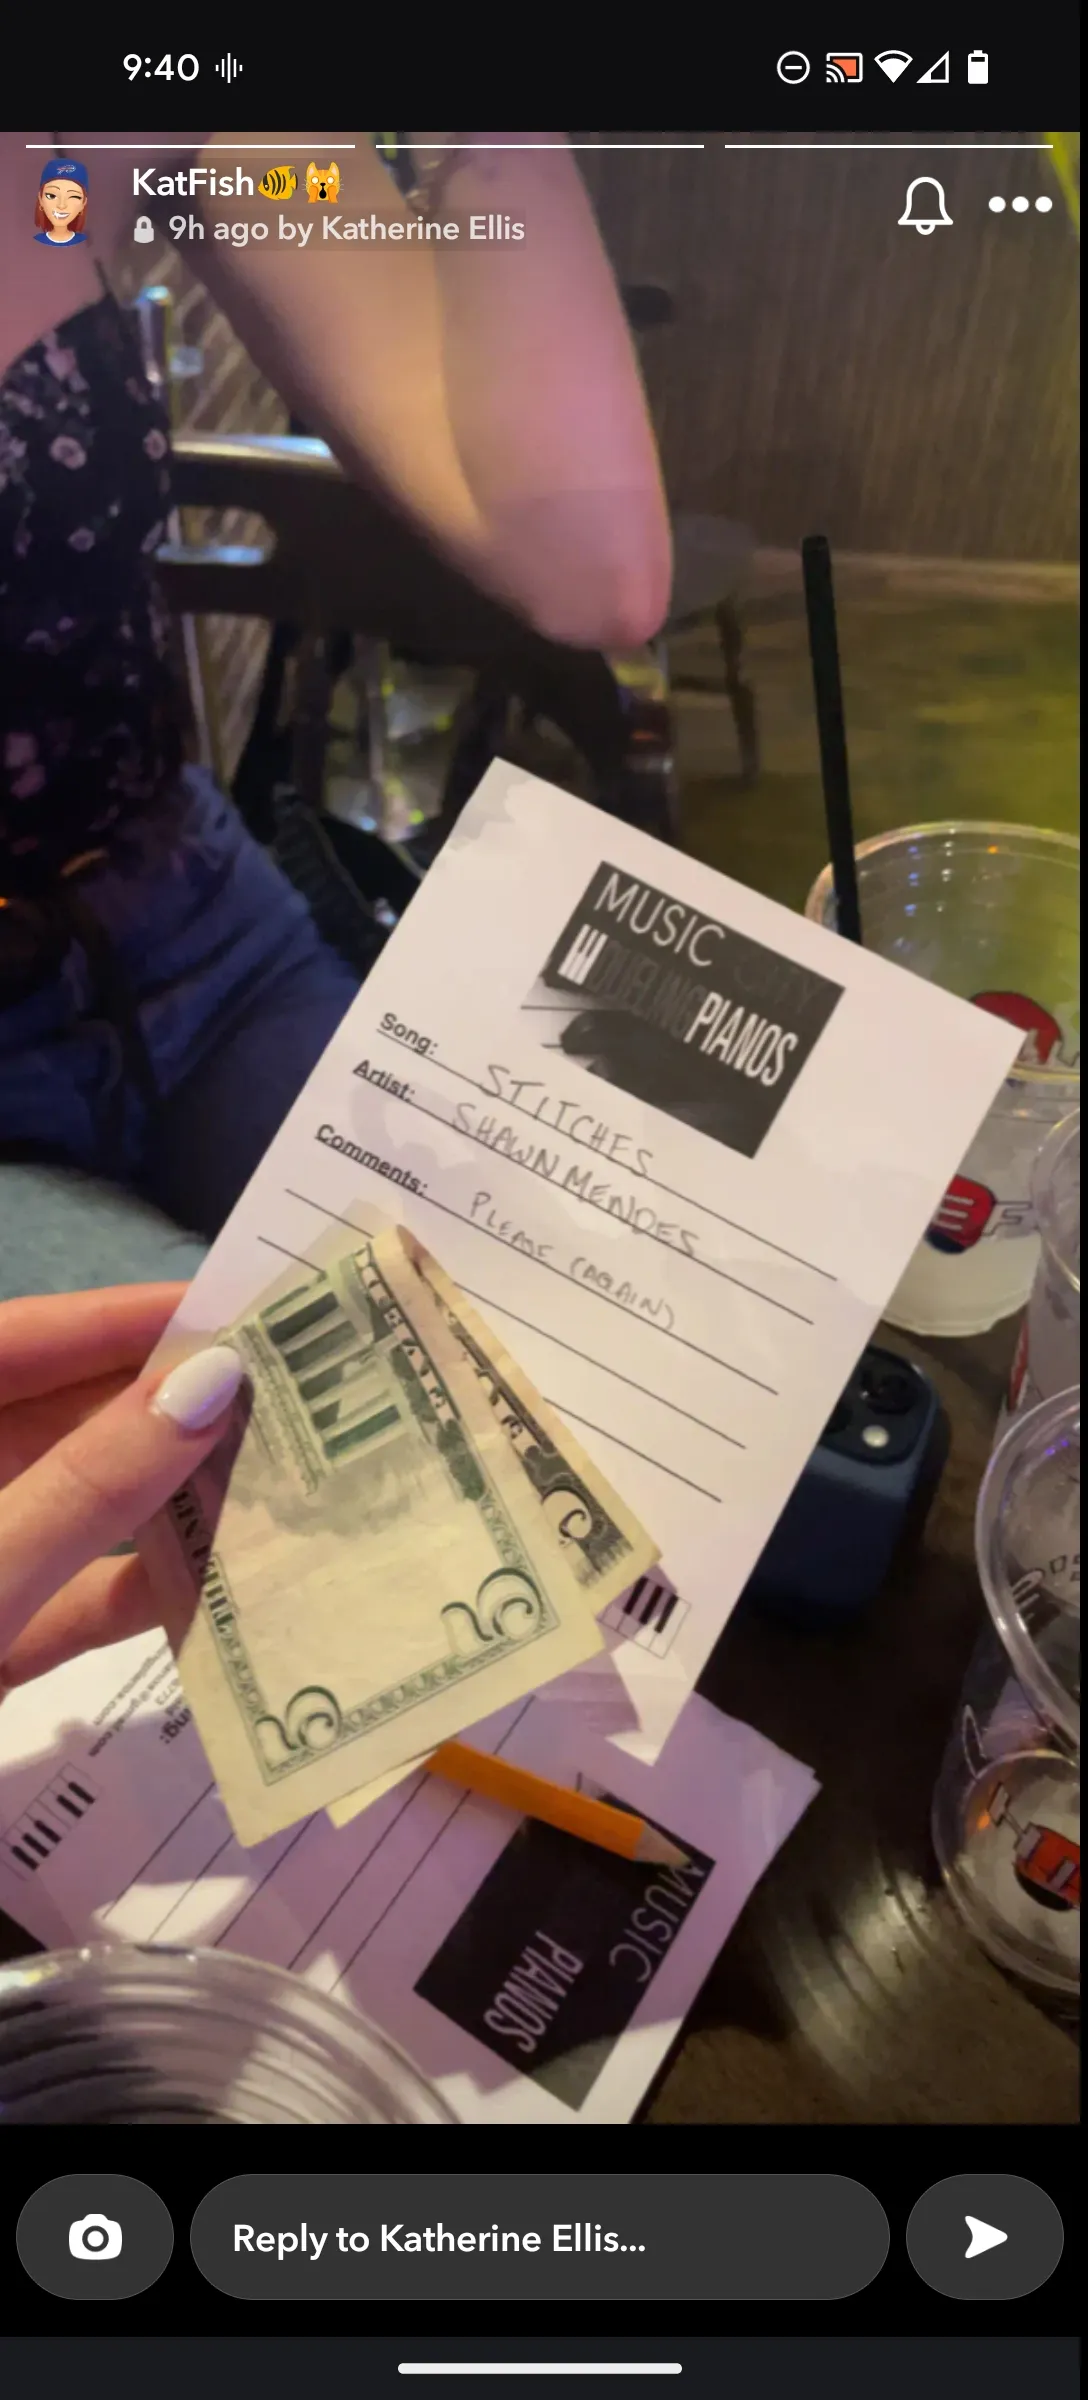 9:40
KatFish🐠🙀
9h ago by Katherine Ellis
MUSIC CITY
DUELING PIANOS
Song: STITCHES
Artist: SHAWN MENDES
Comments: PLEASE (AGAIN)
5
5
5
MUSIC
PIANOS
Reply to Katherine Ellis...